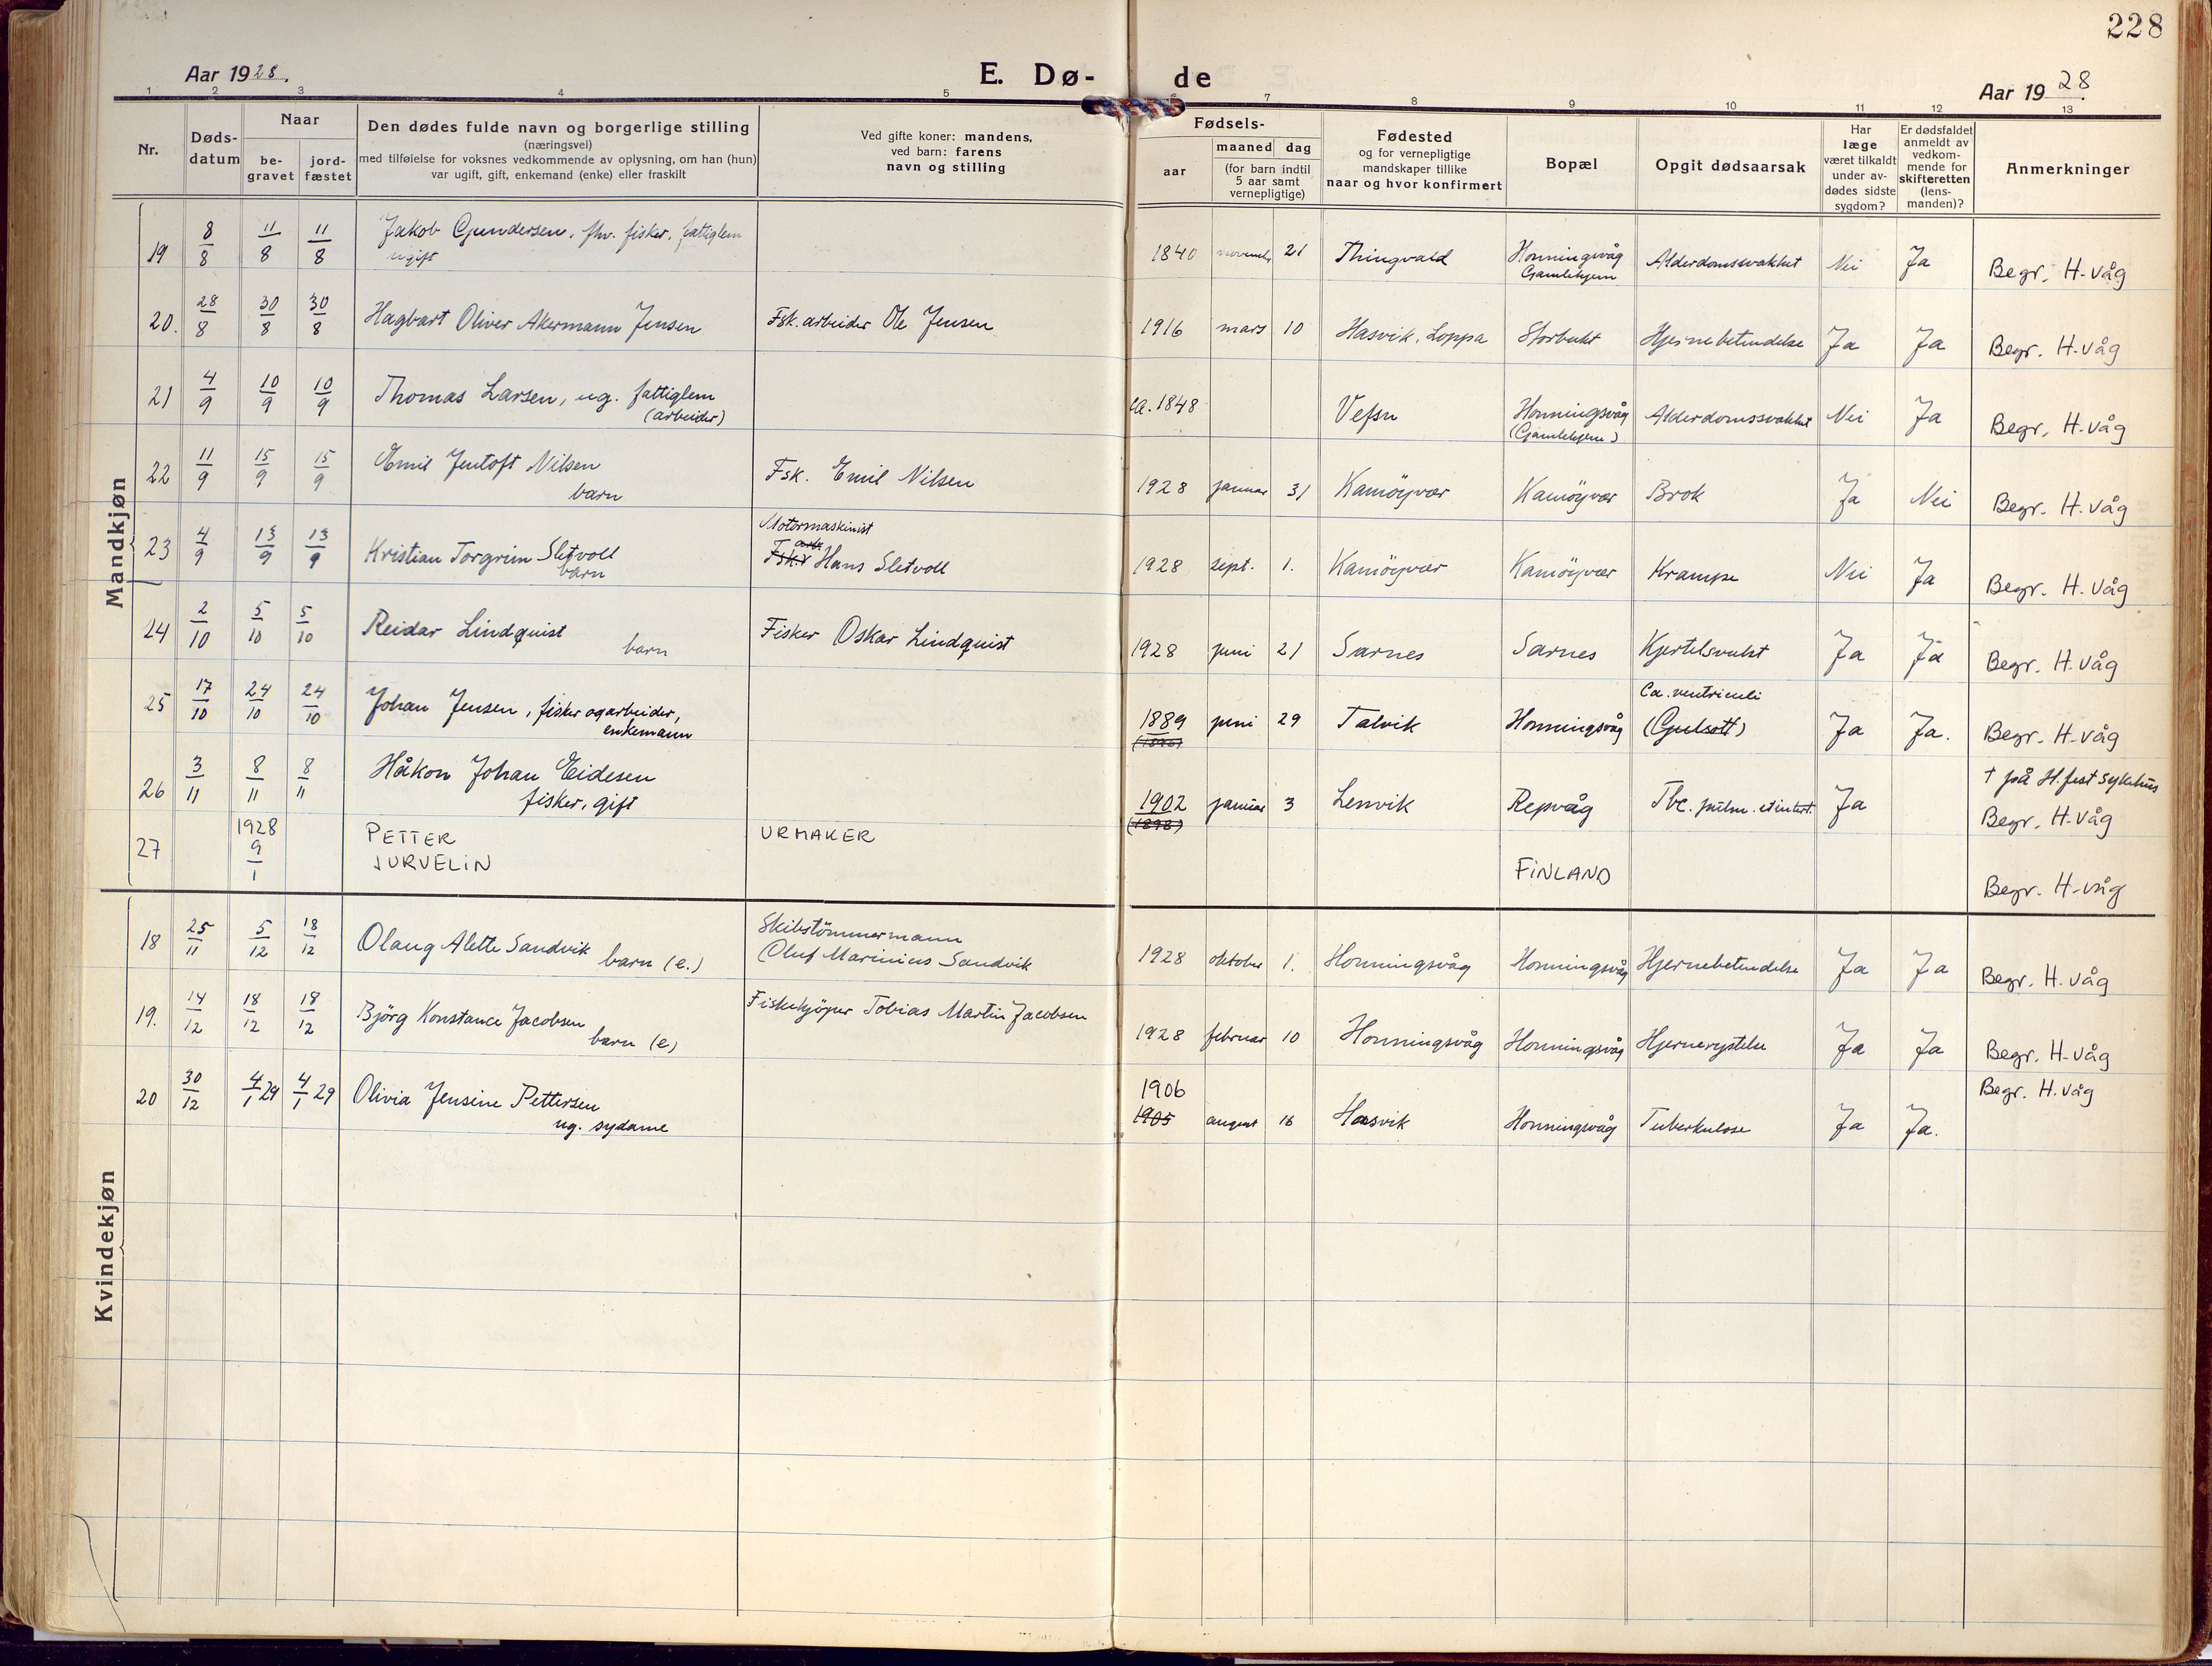 228
Aar 1928.
E. Dø-
de
Aar 1928.
1 2 3 4 5 6 7 8 9 10 11 12 13
Nr.
Døds-
datum
Naar
be-
gravet
jord-
fæstet
Den dødes fulde navn og borgerlige stilling
(næringsvei)
med tilføielse for voksnes vedkommende av oplysning, om han (hun)
var ugift, gift, enkemand (enke) eller fraskilt
Ved gifte koner: mandens,
ved barn: farens
navn og stilling
Fødsels-
aar
maaned dag
(for barn indtil
5 aar samt
vernepligtige)
Fødested
og for vernepligtige
mandskaper tillike
naar og hvor konfirmert
Bopæl
Opgit dødsaarsak
Har
læge
været tilkaldt
under av-
dødes sidste
sygdom?
Er dødsfaldet
anmeldt av
vedkom-
mende for
skifteretten
(lens-
manden)?
Anmerkninger
Mandkjøn
19 8/8 11/8 11/8 Jakob Gundersen, fhv. fisker, fattiglem
ugift
1840 novembr 21 Thingvald Honningsvåg
Gamlehjem
Alderdomssvakhet Nei Ja Begr. H-våg
20. 28/8 30/8 30/8 Hagbart Oliver Akermann Jensen Fsk.arbeider Ole Jensen 1916 mars 10 Hasvik, Loppa Storbukt Hjernebetendelse Ja Ja Begr. H-våg
21 4/9 10/9 10/9 Thomas Larsen, ug. fattiglem
(arbeider)
ca. 1848 Vefsn Honningsvåg
(Gamlehjem)
Alderdomssvakhet Nei Ja Begr. H-våg
22 11/9 15/9 15/9 Emil Jentoft Nilsen
barn
Fsk. Emil Nilsen 1928 januar 31 Kamöyvær Kamöyvær Brok Ja Nei Begr. H.våg
23 4/9 13/9 13/9 Kristian Torgrim Sletvoll
barn
Motormaskinist
arb.
Fsk. Hans Sletvoll 1928 sept. 1. Kamöyvær Kamöyvær Krampe Nei Ja Begr. H.våg
24 2/10 5/10 5/10 Reidar Lindquist
barn
Fisker Oskar Lindquist 1928 juni 21 Sarnes Sarnes Kjertelsvulst Ja Ja Begr. H.våg
25 17/10 24/10 24/10 Johan Jensen, fisker og arbeider,
enkemann
1889 juni 29 Talvik Honningsvåg Ca. ventriculi
(Gulsott) Ja Ja. Begr. H-våg
26 3/11 8/11 8/11 Håkon Johan Eidesen
fisker, gift
1902 januar 3
(1898)
Lenvik Repvåg Tbc. pulm. et intest. Ja
† på H.fest sykehus
Begr. H-våg
27 1928
9/1
PETTER
JURVELIN
URMAKER
FINLAND
Begr. H-våg
Kvindekjøn
18 25/11 5/12 18/12 Olaug Alette Sandvik
barn (e.)
Skibstömmermann
Oluf Marinius Sandvik
1928 oktober 1. Honningsvåg Honningsvåg Hjernebetendelse Ja Ja Begr. H.våg
19. 14/12 18/12 18/12 Björg Konstance Jacobsen
barn (e)
Fiskekjöper Tobias Martin Jacobsen
1928 februar 10 Honningsvåg Honningsvåg Hjernerystelse Ja Ja Begr. H-våg
20 30/12 4/1 29 4/1 29 Olivia Jensine Pettersen
ug. sydame
1906
1905 august 16 Hasvik Honningsvåg Tuberkulose Ja Ja.
Begr. H.våg